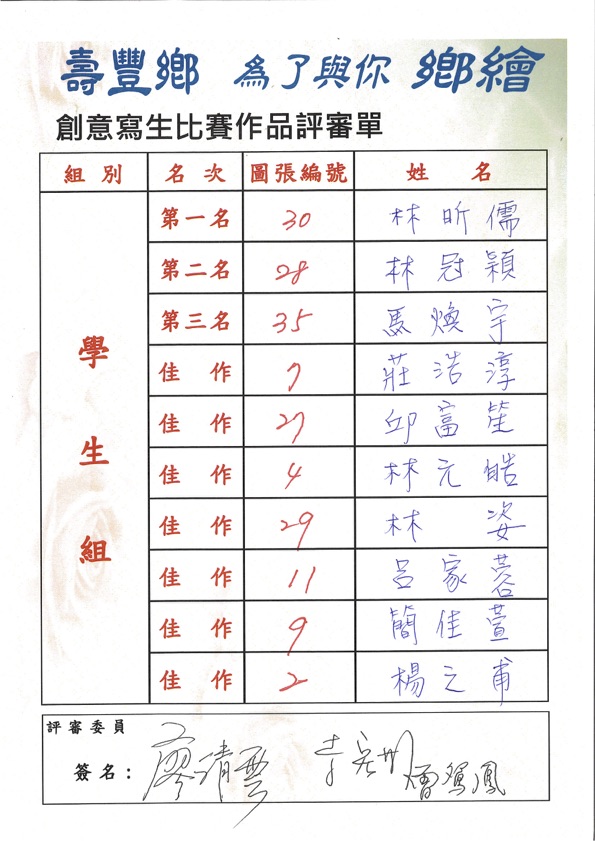 壽豐鄉 為了與你 鄉繪
創意寫生比賽作品評審單
組別 名次 圖張編號 姓名
學生組
第一名 30 林昕儒
第二名 28 林冠穎
第三名 35 馬煥宇
佳作 7 莊浩淳
佳作 27 邱富笙
佳作 4 林元皓
佳作 29 林姿
佳作 11 呂家蓉
佳作 9 簡佳萱
佳作 2 楊之甫
評審委員
簽名：廖清雲